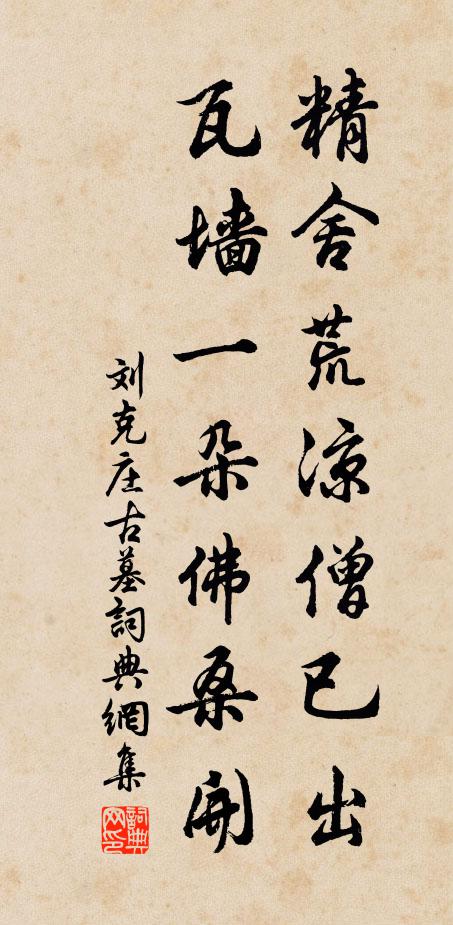 精舍荒凉僧已出
瓦墙一朵佛桑开
刘克庄古墓詞典網集
詞典网印